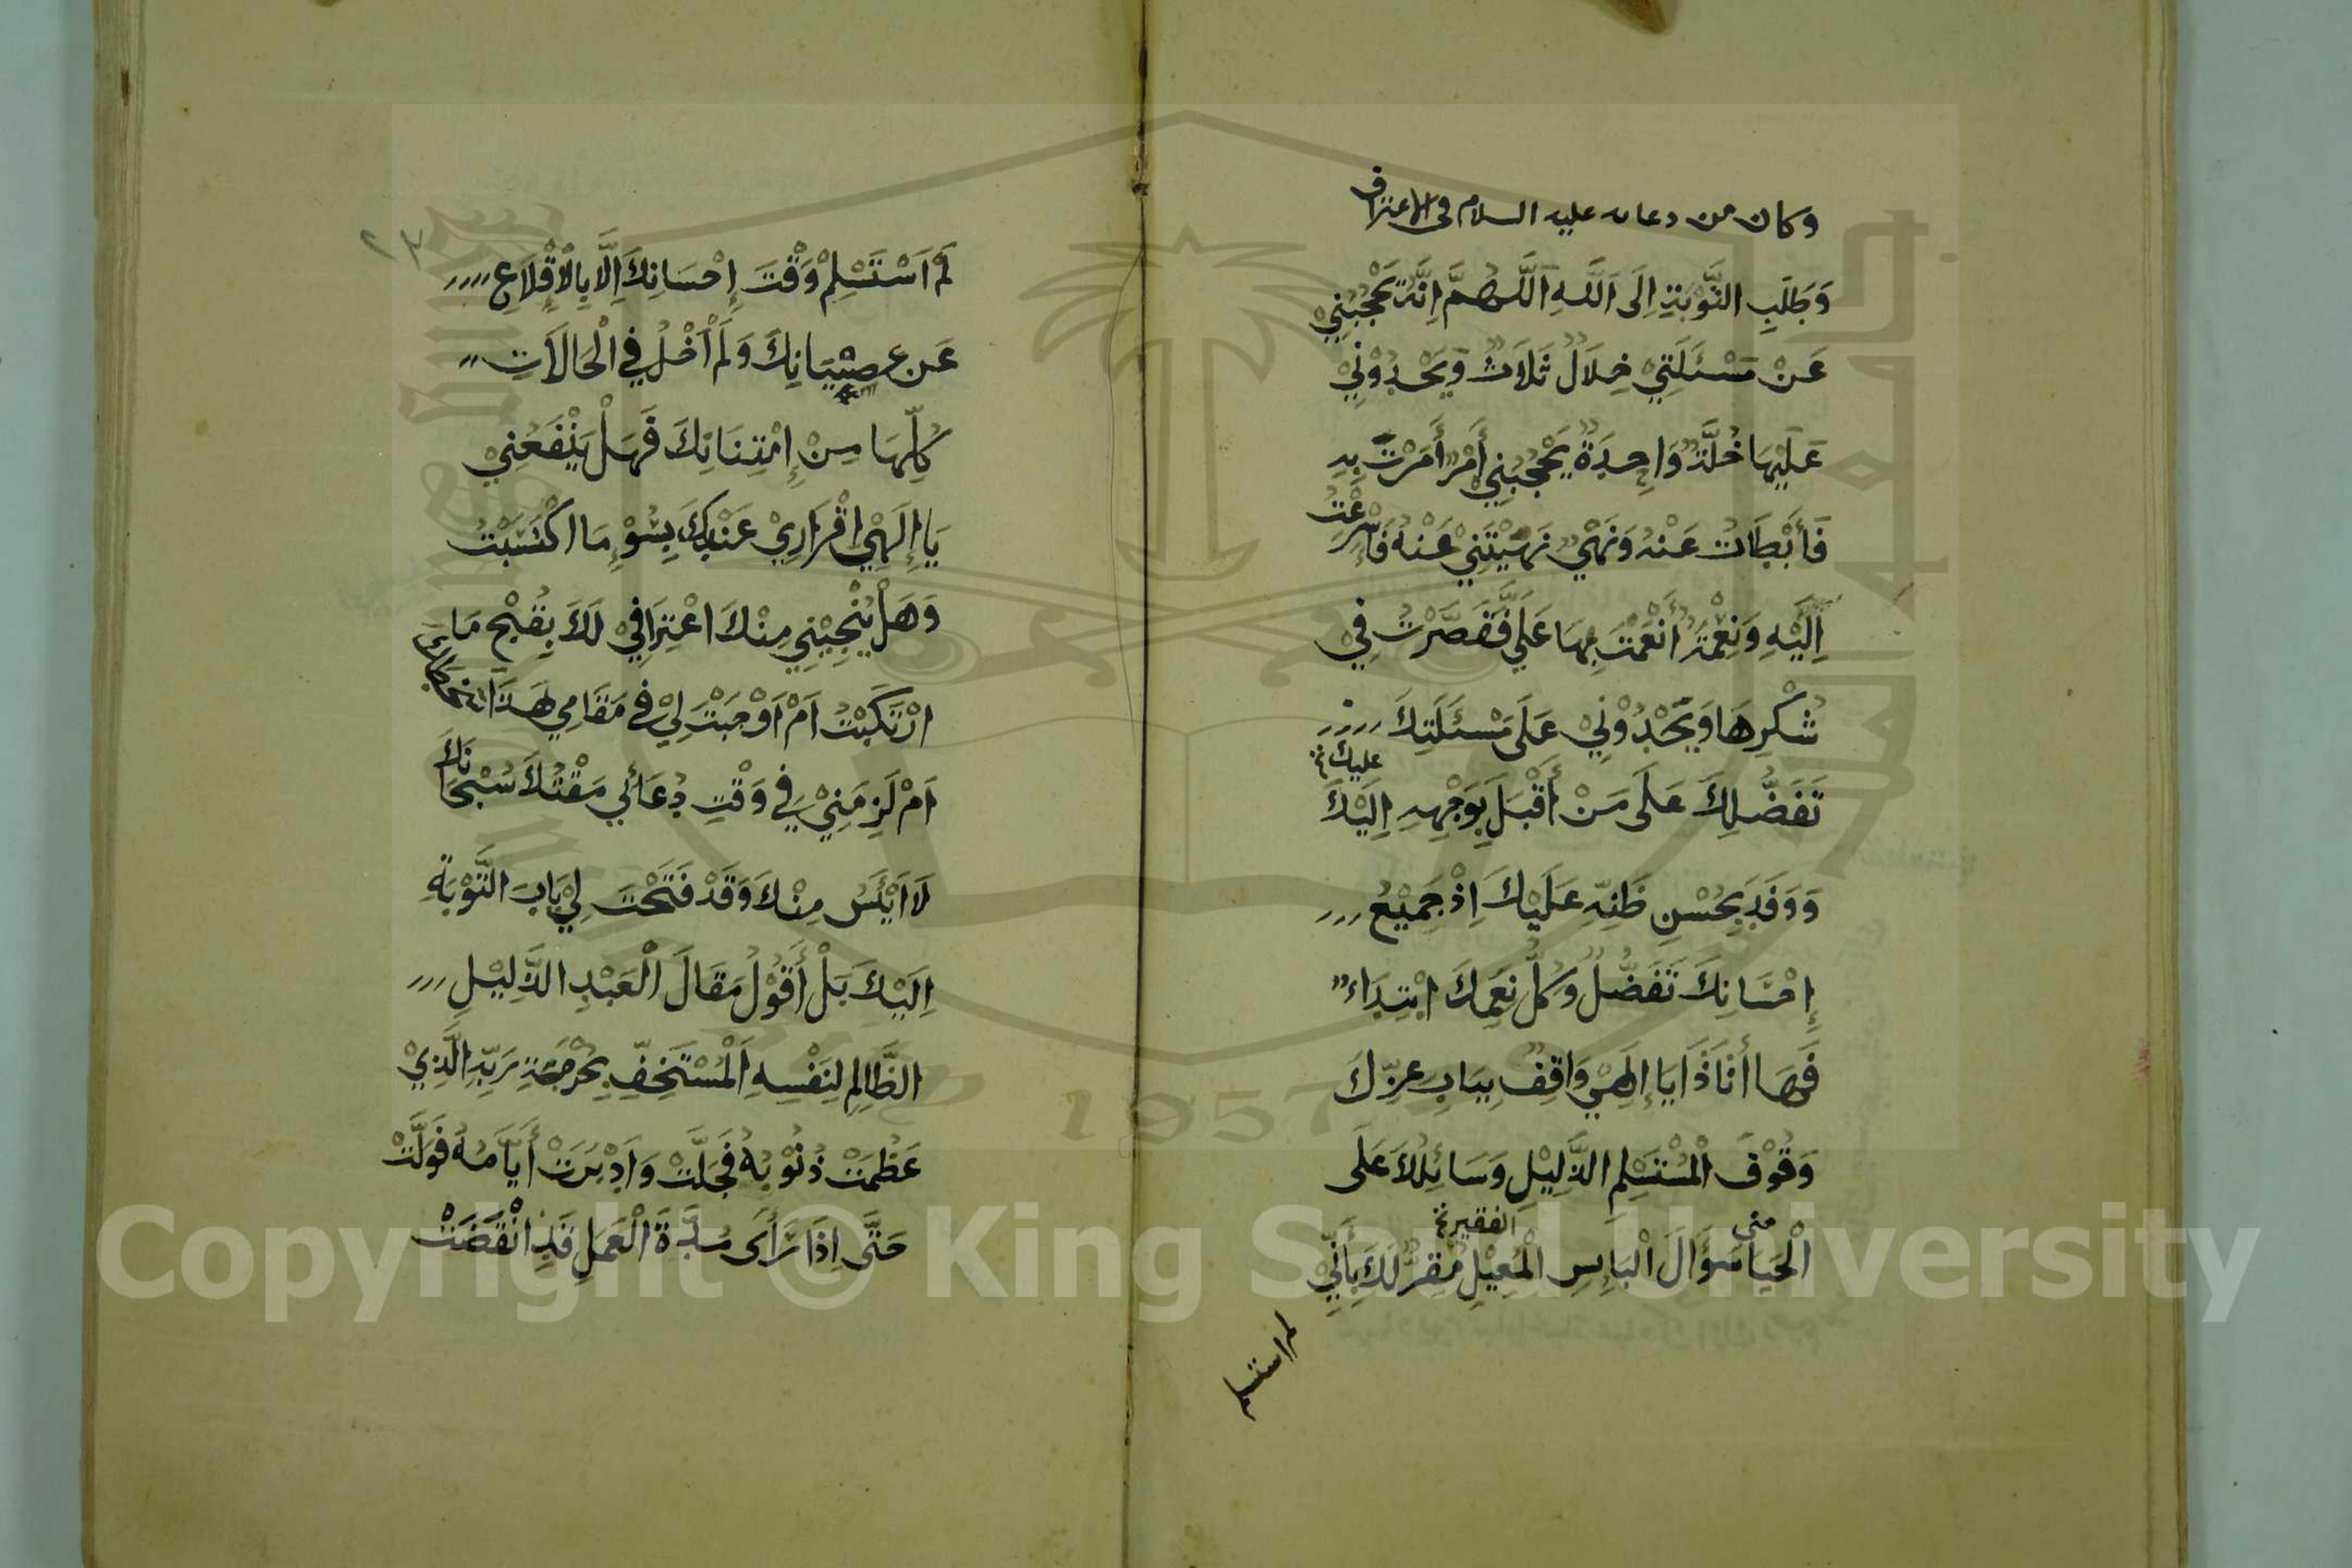 وكان من دعائه عليه السلام في الاعتراف
وَطَلَبِ التَّوْبَةِ اِلَى اَللهِ اَللَّهُمَّ اِنَّهُ يَحْجُبُنِيْ
عَنْ مَسْئَلَتِيْ خِلَالٌ ثَلَاثٌ وَيَحْدُوْنِيْ
عَلَيْهَا خُلَّةٌ وَاحِدَةٌ يَحْجُبُنِي أَمْرٌ أَمَرْتَ بِهِ
فَأَبْطَأتُ عَنْهُ وَنَهْيٌ نَهَيْتَنِيْ عَنْهُ فَأَسْرَعْتُ
اِلَيْهِ وَنِعْمَةٌ أَنْعَمْتَ بِهَا عَلَيَّ فَقَصَّرْتُ فِيْ
شُكْرِهَا وَيَحْدُوْنِيْ عَلَى مَسْئَلَتِكَ
عليك
تَفَضُّلُكَ عَلَى مَنْ أَقْبَلَ بِوَجْهِهِ اِلَيْكَ
وَوَفَدَ بِحُسْنِ ظَنِّهِ عَلَيْكَ اِذْ جَمِيْعُ
إِحْسَانِكَ تَفَضُّلٌ وَكُلُّ نِعَمِكَ ابْتِدَاءٌ
فَهَا أَنَا ذَا يَا إِلَهِيْ وَاقِفٌ بِبَابِ عِزِّكَ
وَقُوْفَ الْمُسْتَسْلِمِ الذَّلِيْلِ وَسَائِلُكَ عَلَى
منى الفقير
الْحَيَا سُؤَالَ الْبَائِسِ الْمُعِيْلِ مُقِرٌّ لَكَ بِأَنِّي
لم استسلم
٢٣
لَمْ اَسْتَسْلِمْ وَقْتَ إِحْسَانِكَ اِلَّا بِالْاِقْلَاعِ
عَن عِصْيَانِكَ وَلَمْ أَخْلُ فِي الْحَالَاتِ
كُلِّهَا مِنْ إِمْتِنَانِكَ فَهَلْ يَنْفَعُنِيْ
يَا إِلَهِيْ اِقْرَارِيْ عِنْدَكَ بِسُوْءِ مَا اكْتَسَبْتُ
وَهَلْ يُنْجِيْنِي مِنْكَ اعْتِرَافِيْ لَكَ بِقُبْحِ مَا
ارْتَكَبْتُ اَمْ اَوْجَبْتَ لِيْ فِي مَقَامِي هَذَا
اَمْ لَزِمَنِيْ فِي وَقْتِ دُعَائِي مَقْتُكَ سُبْحَانَكَ
لَا اَيْئَسُ مِنْكَ وَقَدْ فَتَحْتَ لِيْ بَابَ التَّوْبَةِ
اِلَيْكَ بَلْ أَقُوْلُ مَقَالَ الْعَبْدِ الذَّلِيْلِ
الظَّالِمِ لِنَفْسِهِ اَلْمُسْتَخِفِّ بِحُرْمَةِ رَبِّهِ الَّذِيْ
عَظُمَتْ ذُنُوْبُهُ فَجَلَّتْ وَاَدْبَرَتْ أَيَّامُهُ فَوَلَّتْ
حَتَّى اِذَا رَأَى مُدَّةَ الْعَمَلِ قَدِ انْقَضَتْ
1957
Copyright © King Saud University